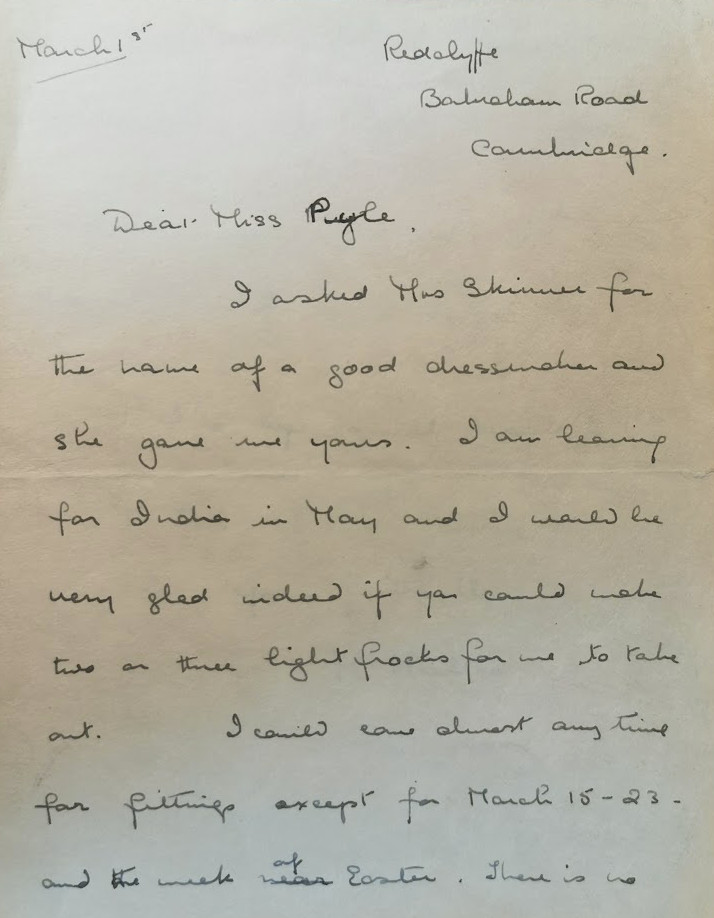 March 1st
Redclyffe
Babraham Road
Cambridge.
Dear Miss Pryle,
I asked Mrs Skinner for
the name of a good dressmaker and
she gave me yours. I am leaving
for India in May and I would be
very glad indeed if you could make
two or three light frocks for me to take
out. I could come almost any time
for fittings except for March 15-23 -
and the week of Easter. There is no